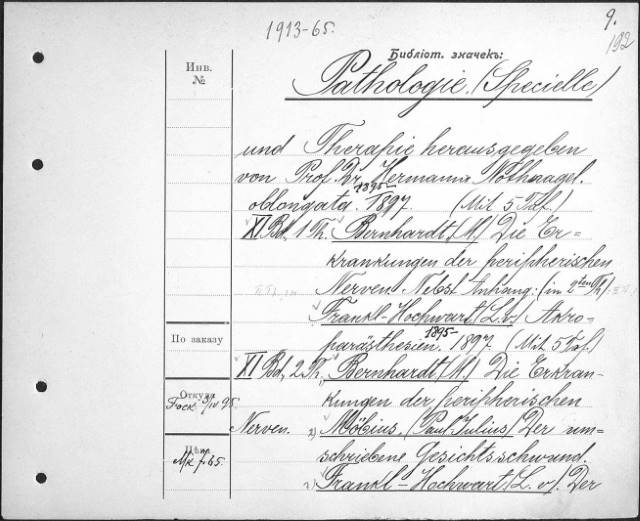 1913-65.
9.
192
Библіот. значекъ:
Инв.
№
Pathologie. (Specielle)
und Therapie herausgegeben
von Prof. Dr. Hermann Nothnagel.
1895-
oblongata. 1897. (Mit 5 Taf.)
XI Bd, 1 Th. Bernhardt (M) Die Er=
krankungen der peripherischen
Nerven. Nebst Anhang: (in 2ten Th)
Frankl-Hochwart (L. v) Akro-
1895-
parästhesien. 1897. (Mit 5 Taf.)
По заказу
XI Bd, 2 Th. Bernhardt (M) Die Erkran-
Откуда
Fock 9/IV 95.
kungen der peripherischen
Nerven. 2) Möbius. (Paul Julius) Der um-
Цѣна
schriebene Gesichtsschwund.
Frankl-Hochwart (L. v). Der